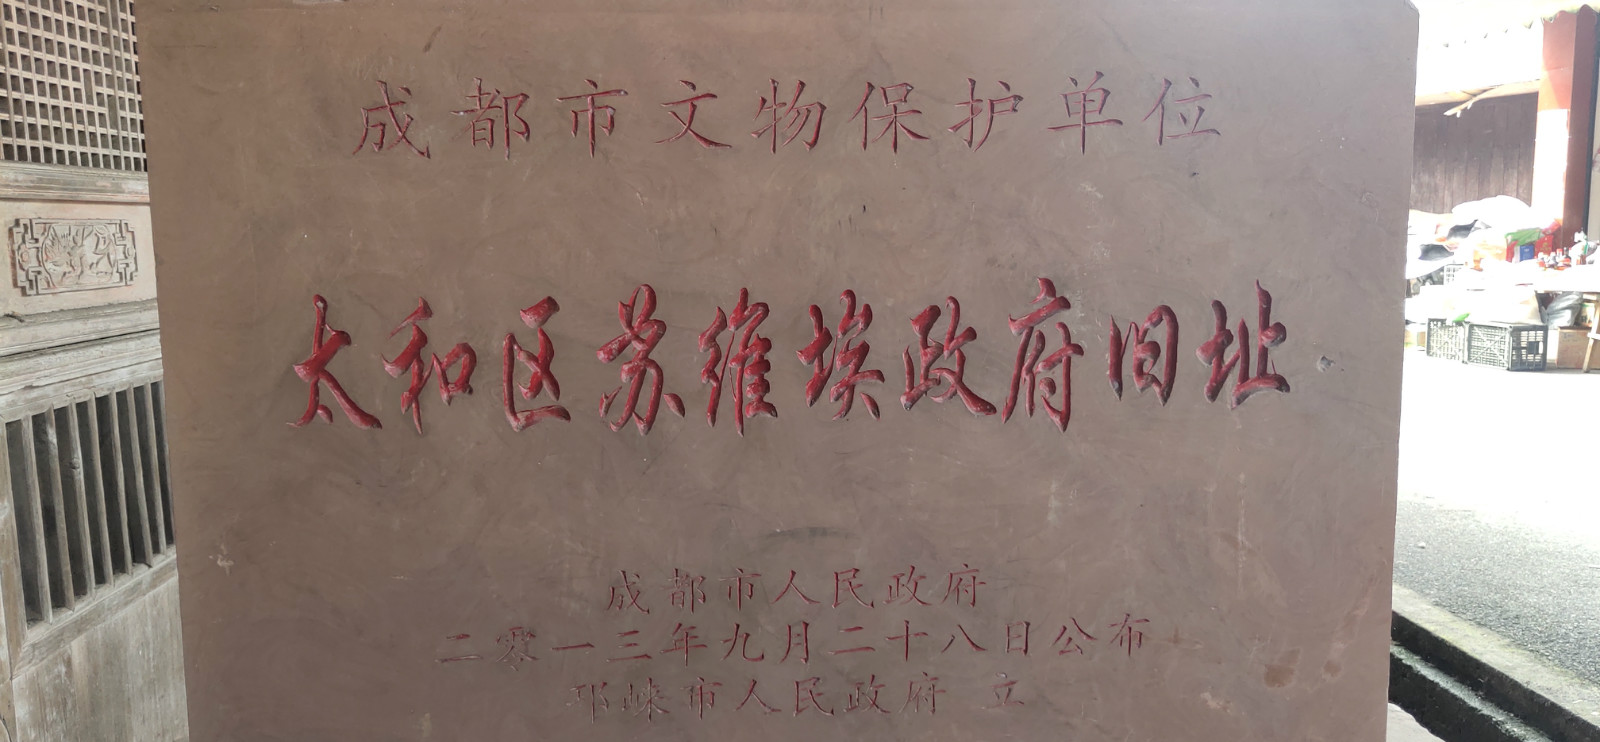 成都市文物保护单位
太和区苏维埃政府旧址
成都市人民政府
二零一三年九月二十八日公布
邛崃市人民政府 立